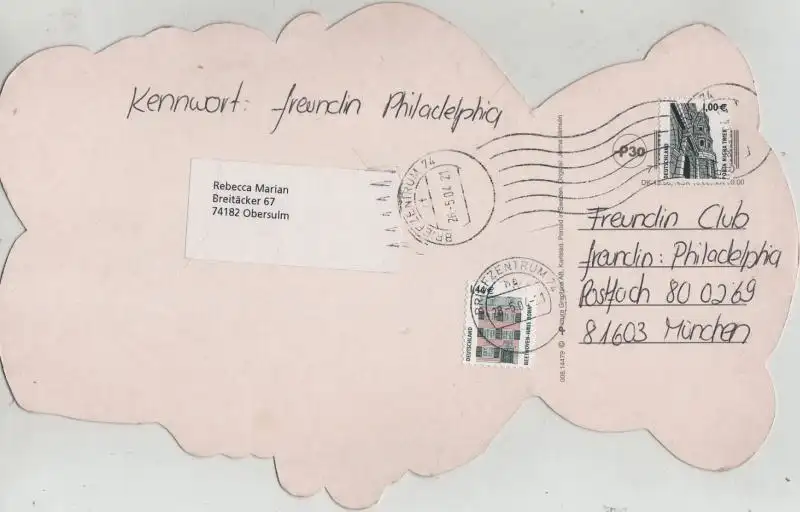 Kennwort: freundin Philadelphia
Rebecca Marian
Breitäcker 67
74182 Obersulm
BRIEFZENTRUM 74
26.-5.04-21
1,00 €
DEUTSCHLAND
PORTA NIGRA TRIER
P30
Freundin Club
freundin: Philadelphia
Postfach 80 02 69
81603 München
BRIEFZENTRUM 74
26.-5.04-21
1,44 €
DEUTSCHLAND
BEETHOVEN-HAUS BONN